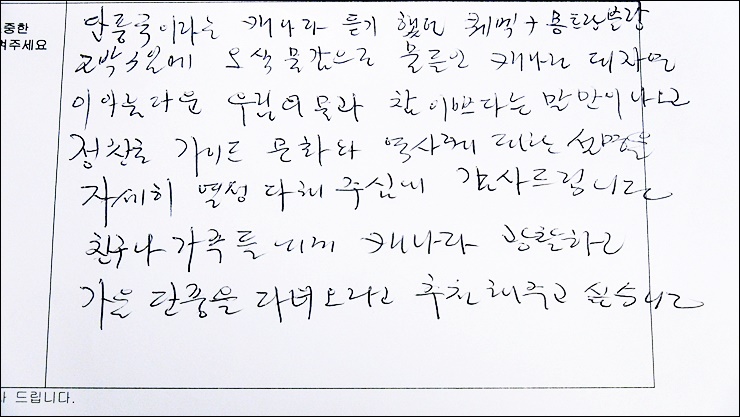 중한
겨주세요
단풍국이라는 캐나다 듣기 했던 퀘벡 + 몽트란블랑
2박3일에 오색 물감으로 물들인 캐나다 대자연
이 아름다운 우림의 물과 참 이쁘다는 말만이 나오고
정찬호 가이드 문화와 역사에 대한 설명을
자세히 열정 다해 주심에 감사드립니다
친구나 가족들에게 캐나다 광활하고
가을 단풍을 다녀오라고 추천해주고 싶습니다
사 드립니다.